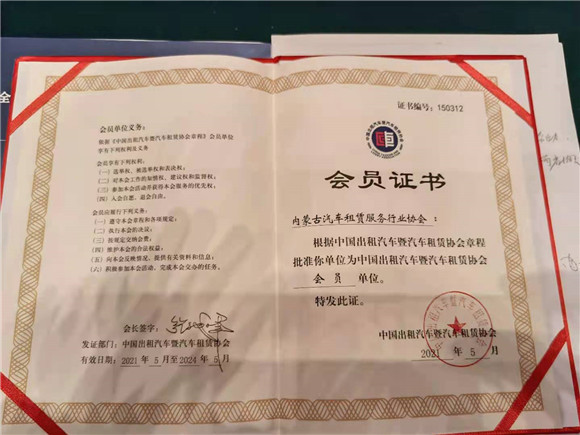 会员单位义务：
根据《中国出租汽车暨汽车租赁协会章程》会员单位
享有下列权利及义务
会员享有下列权利：
（一）选举权、被选举权和表决权；
（二）对本会工作的知情权、建议权和监督权；
（三）参加本会活动并获得本会服务的优先权；
（四）入会自愿、退会自由。
会员应履行下列义务：
（一）遵守本会章程和各项规定；
（二）执行本会的决议；
（三）按规定交纳会费；
（四）维护本会的合法权益；
（五）向本会反映情况，提供有关资料和信息；
（六）积极参加本会活动，完成本会交办的任务。
会长签字：
发证部门：中国出租汽车暨汽车租赁协会
有效日期：2021 年 5 月至 2024 年 5 月
证书编号：150312
会员证书
内蒙古汽车租赁服务行业协会：
根据中国出租汽车暨汽车租赁协会章程
批准你单位为中国出租汽车暨汽车租赁协会
会 员 单位。
特发此证。
中国出租汽车暨汽车租赁协会
2021 年 5 月
全